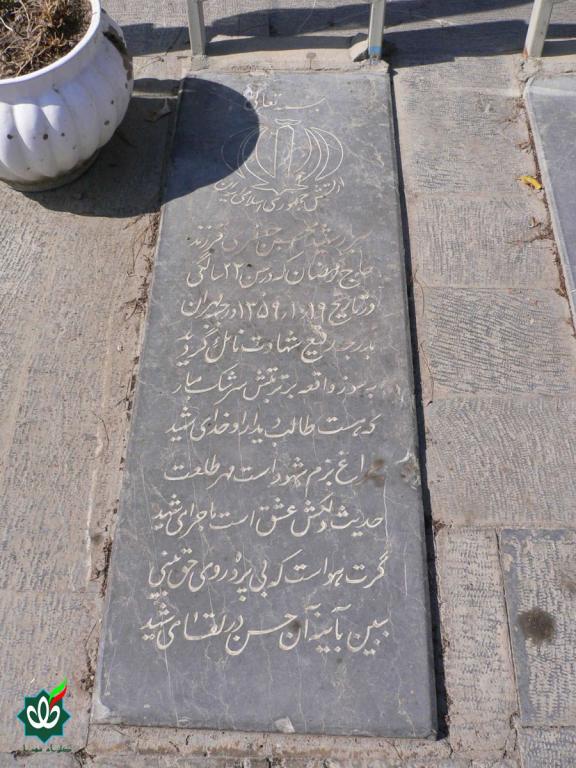 بسمه تعالی
ارتش جمهوری اسلامی ایران
حسین فرزند
حاج رمضان که در سن ۲۲ سالگی
در تاریخ ۱۳۵۹٫۱۰٫۱۹ در
بدرجه رفیع شهادت نائل گردید
به سوز واقعه بر تربتش سرشک مبار
که هست طالب دیدار او خدای شهید
چراغ بزم شهود است مهر طلعت
حدیث دلکش عشق است ماجرای شهید
گرت هواست که بی پرده روی حق بینی
ببین بآینه آن حسن در لقای شهید